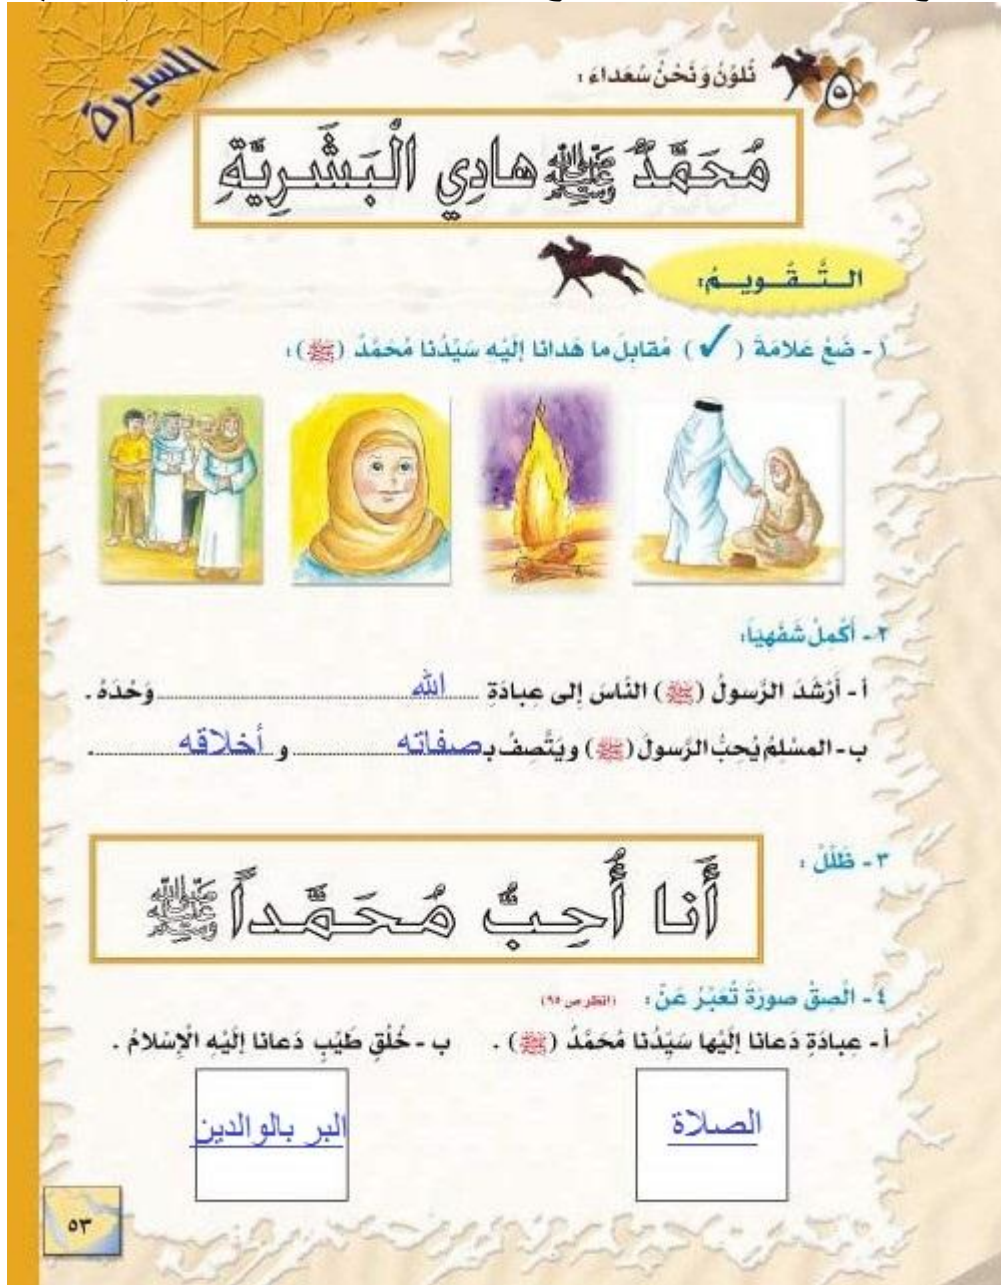 السيرة
٥ نُلَوِّنُ وَنَحْنُ سُعَداءَ :
مُحَمَّدٌ ﷺ هادِي الْبَشَرِيَّةِ
التَّقْويمُ:
١- ضَعْ عَلامَةَ ( ✓ ) مُقابِلَ ما هَدانا إِلَيْهِ سَيِّدُنا مُحَمَّدٌ (ﷺ):
٢- أَكْمِلْ شَفَهِيّاً:
أ- أَرْشَدَ الرَّسولُ (ﷺ) النَّاسَ إِلى عِبادَةِ ........ الله ........ وَحْدَهُ .
ب- المسْلِمُ يُحِبُّ الرَّسولَ (ﷺ) ويَتَّصِفُ بـ صفاته ........ و أخلاقه ........ .
٣- ظَلِّلْ :
أَنا أُحِبُّ مُحَمَّداً ﷺ
٤- الْصِقْ صورَةً تُعَبِّرُ عَنْ : (انظر ص ٩٥)
أ- عِبادَةٍ دَعانا إِلَيْها سَيِّدُنا مُحَمَّدٌ (ﷺ) . ب- خُلُقٍ طَيِّبٍ دَعانا إِلَيْهِ الْإِسْلامُ .
الصلاة البر بالوالدين
٥٣